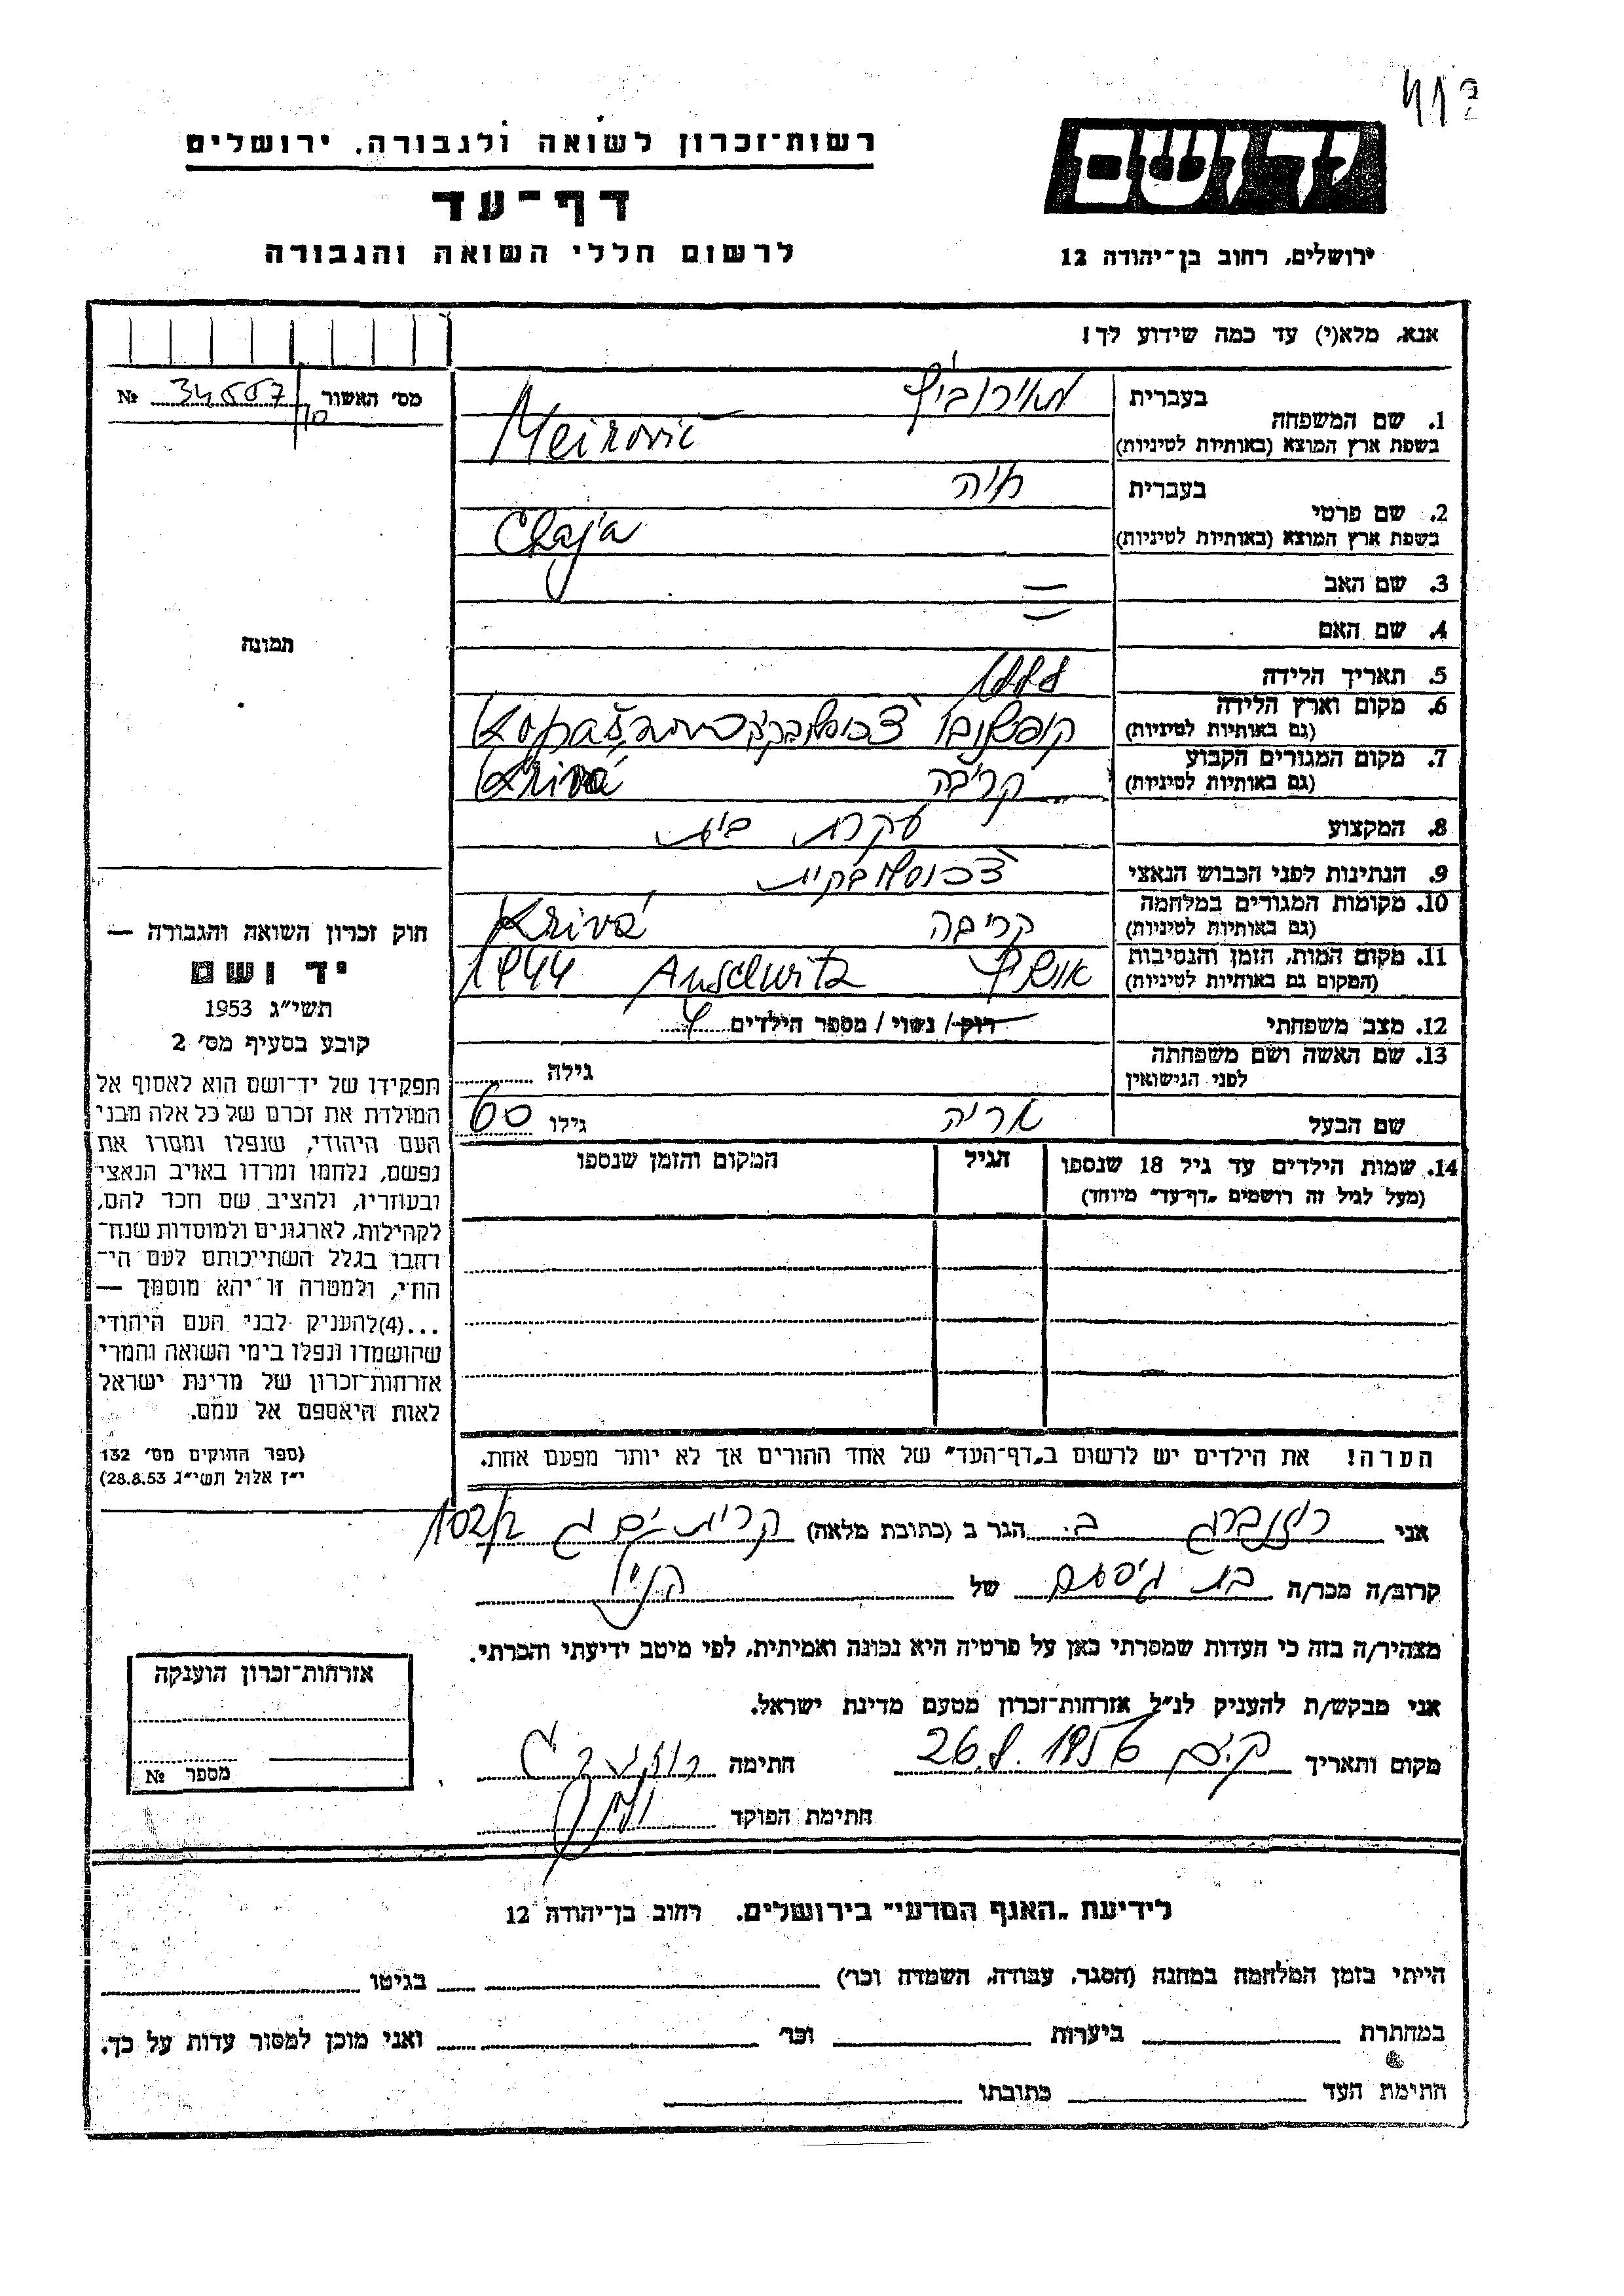 רשות־זכרון לשואה ולגבורה, ירושלים
דף־עד
לרשום חללי השואה והגבורה
יד ושם
ירושלים, רחוב בן־יהודה 12
אנא, מלא(י) עד כמה שידוע לך!
מס׳ האשור 34557/10 №
1. שם המשפחה
בעברית מאירוביץ
בשפת ארץ המוצא (באותיות לטיניות) Meirovič
2. שם פרטי
בעברית חיה
בשפת ארץ המוצא (באותיות לטיניות) Chaja
3. שם האב =
4. שם האם
5. תאריך הלידה 1888
6. מקום וארץ הלידה
(גם באותיות לטיניות)
7. מקום המגורים הקבוע קריבה Krivá
(גם באותיות לטיניות)
8. המקצוע עקרת בית
9. הנתינות לפני הכבוש הנאצי צ׳כוסלובקית
10. מקומות המגורים במלחמה קריבה Krivá
(גם באותיות לטיניות)
11. מקום המות, הזמן והנסיבות אושויץ Auschwitz 1944
(המקום גם באותיות לטיניות)
12. מצב משפחתי רוק / נשוי / מספר הילדים 4
13. שם האשה ושם משפחתה
לפני הנישואין
גילה
שם הבעל אריה גילו 60
14. שמות הילדים עד גיל 18 שנספו
(מעל לגיל זה רושמים „דף־עד״ מיוחד)
הגיל
המקום והזמן שנספו
הערה! את הילדים יש לרשום ב„דף־העד״ של אחד ההורים אך לא יותר מפעם אחת.
תמונה
חוק זכרון השואה והגבורה —
יד ושם
תשי״ג 1953
קובע בסעיף מס׳ 2
תפקידו של יד־ושם הוא לאסוף אל
המולדת את זכרם של כל אלה מבני
העם היהודי, שנפלו ומסרו את
נפשם, נלחמו ומרדו באויב הנאצי
ובעוזריו, ולהציב שם וזכר להם,
לקהילות, לארגונים ולמוסדות שנח־
רבו בגלל השתייכותם לעם הי־
הודי, ולמטרה זו יהא מוסמך —
...(4) להעניק לבני העם היהודי
שהושמדו ונפלו בימי השואה והמרי
אזרחות־זכרון של מדינת ישראל
לאות היאספם אל עמם.
(ספר החוקים מס׳ 132
י״ז אלול תשי״ג 28.8.53)
אני רוזנברג ב. הגר ב (כתובת מלאה) קרית ים ג 102/2
קרוב/ה מכר/ה בת גיסתם של הנ״ל
מצהיר/ה בזה כי העדות שמסרתי כאן על פרטיה היא נכונה ואמיתית, לפי מיטב ידיעתי והכרתי.
אני מבקש/ת להעניק לנ״ל אזרחות־זכרון מטעם מדינת ישראל.
מקום ותאריך ק.ים 26.8.1956 חתימה
חתימת הפוקד
אזרחות־זכרון הוענקה
מספר №
לידיעת „האגף המדעי״ בירושלים, רחוב בן־יהודה 12
הייתי בזמן המלחמה במחנה (הסגר, עבודה, השמדה וכו׳) בגיטו
במחתרת ביערות וכו׳ ואני מוכן למסור עדות על כך.
חתימת העד כתובתו